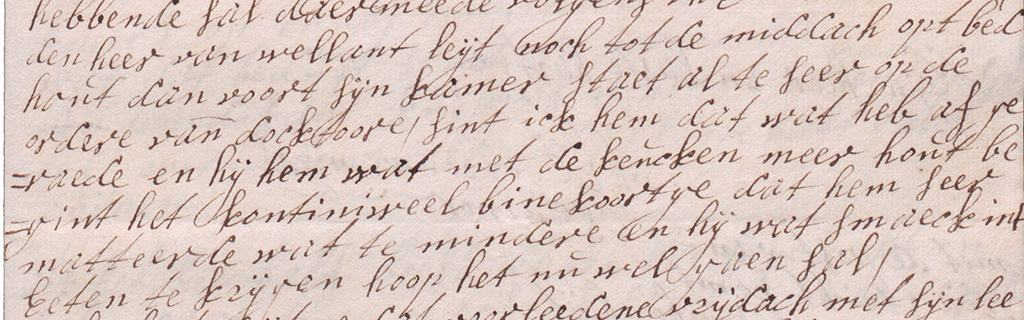 hebbende sal daer meede
den heer van wellant leyt noch tot de middach opt bed
hout dan voort syn kamer staet al te seer op de
ordere van docktoore / sint ick hem dat wat heb af ge
=raede en hy hem wat met de keucken meer hout be
=gint het kontiniweel binekoortge dat hem seer
matteerde wat te mindere en hy wat smaeck int
eeten te krygen hoop het nu wel gaen sal /
verleedene vrydach met syn lee